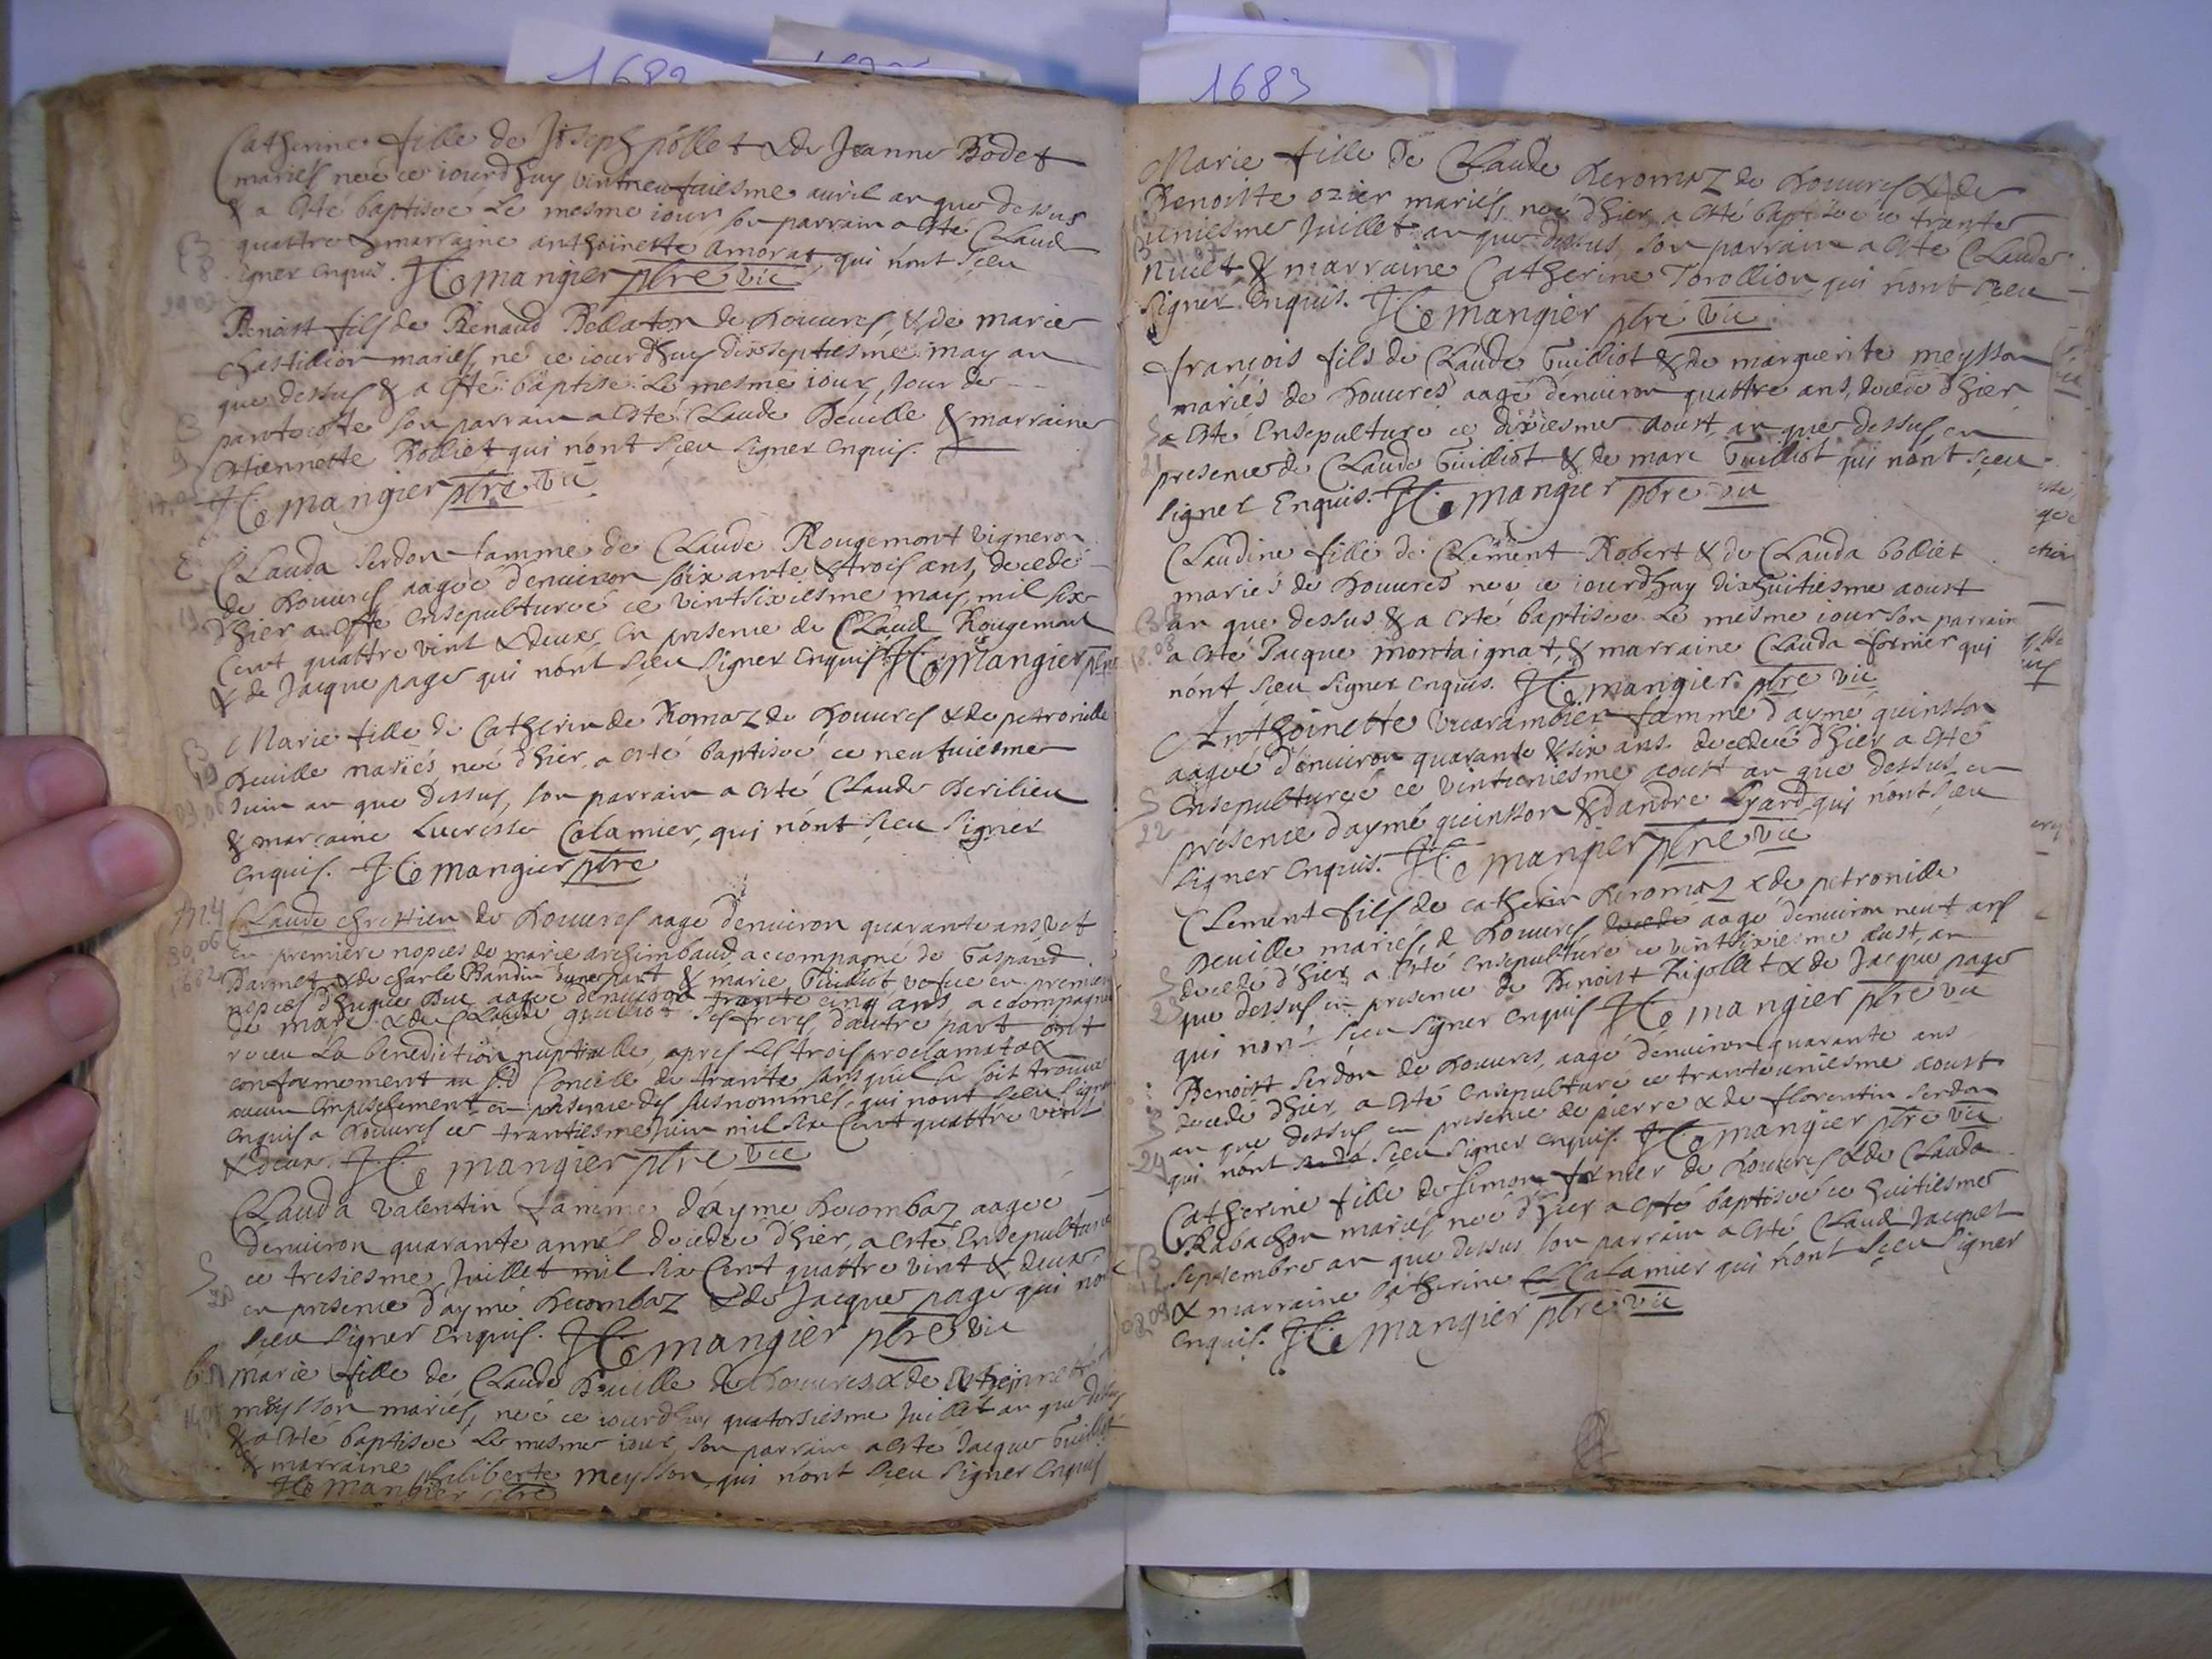 1682
1683
Catherine fille de Joseph pollet & de Jeanne Bodet
mariés neé ce iourdhuy vintneufuiesme auril an que dessus
& a esté baptiseé le mesme iour son parrain a esté Claude
quattre & marraine anthoinette amorat, qui n'ont sceu
signer enquis. mangier pbre vic
B
8
Benoist fils de Renaud Bellaton de Douures, & de marie
chastillion mariés, né ce iourdhuy dixseptiesme may an
que dessus & a esté baptisé le mesme iour, Jour de
pantecoste son parrain a esté Claude Deuille & marraine
estiennette Rolliet qui n'ont sceu signer enquis.
mangier pbre vic
B
9
Clauda Serdon famme de Claude Rougemont vigneron
de Douures aageé d'enuiron soixante & trois ans, decedeé
d'hier a esté ensepultureé ce vintsixiesme may, mil six
Cent quattre vint & deux, en presence de Claude Rougemont
& de Jacque page qui n'ont sceu signer enquis. mangier pbre
Marie fille de Catherin de Romaz de Douures & de petronille
Deuille mariés, neé d'hier, a esté baptiseé ce neufuiesme
Juin an que dessus, son parrain a esté Claude Berilieu
& marraine Lucresse Calamier, qui n'ont sceu signer
enquis. mangier pbre
B
10
09.06
M.4
30.06
1682
Claude chrestien de Douures aagé d'enuiron quarante ans vef
en premiere nopces de marie archimbaud accompagné de Gaspard
Darmet & de charle Bandin d'une part & marie Guilliot vefue en premier
nopces d'hugue Duc aageé d'enuiron trante cinq ans, accompagneé
de marc & de Claude guilliot ses freres, d'autre part ont
receu la benediction nuptialle, apres les trois proclamatoẽ
conformement au s.d Concille de trante, sans qu'il se soit trouué
aucun empeschement, en presence des susnommés, qui n'ont sceu signer
enquis a Douures ce trantiesme Juin mil six Cent quattre vint
& deux. mangier pbre vic
Clauda valentin famme d'ayme Decombaz aageé
d'enuiron quarante anneés decedeé d'hier, a esté Ensepultureé
ce tresiesme Juillet mil six Cent quattre vint & deux
en presence d'aymé Decombaz & de Jacque page qui n'ont
sceu signer enquis. mangier pbre vic
S
20
marie fille de Claude Deuille de Douures & de Estiennette
meysson mariés, neé ce iourdhuy quatorsiesme Juillet an que dessus
& a esté baptiseé le mesme iour, son parrain a esté Jacque Guilliot
& marraine philiberte meysson, qui n'ont sceu signer enquis
mangier pbre
Marie fille de Claude Deromaz de Douures & de
Benoitte ozier mariés, neé d'hier a esté baptiseé ce trante
uniesme Juillet an que dessus, son parrain a esté Claude
niuelt & marraine Catherine Torollion, qui n'ont sceu
signer Enquis. mangier pbre vic
françois fils de Claude Guilliot & de marguerite meysson
mariés de Douures aagé d'enuiron quattre ans, decedé d'hier
a esté Ensepulturé ce dixiesme Aoust, an que dessus, en
presence de Claude Guilliot & de marc Guilliot qui n'ont sceu
signer Enquis. mangier pbre vic
S
21
Claudine fille de Clement Robert & de Clauda bolliet
mariés de Douures neé ce iourdhuy dixhuitiesme aoust
an que dessus & a esté baptiseé le mesme iour son parrain
a esté Jacque montaignat, & marraine Clauda fornier qui
n'ont sceu signer enquis. mangier pbre vic
18.08
Anthoinette vucarambier famme d'aymé quinsson
aageé d'enuiron quarante & six ans. decedeé d'hier a esté
ensepultureé ce vintuniesme aoust an que dessus, en
presence d'aymé quinsson & d'andre Lyard, qui n'ont sceu
signer enquis. mangier pbre vic
S
22
Clement fils de catherin Deromaz & de petronille
Deuille mariés, d Douures aagé d'enuiron neuf ans
decedé d'hier a esté ensepulturé ce vintsixiesme aust, an
que dessus en presence de Benoist Rigollet & de Jacque page
qui n'ont sceu signer enquis mangier pbre vic
S
23
Benoist Serdon de Douures, aagé d'enuiron quarante ans
decedé d'hier, a esté ensepulturé ce tranteuniesme aoust
an que dessus en presence de pierre & de florentin Serdon
qui n'ont sceu signer enquis. mangier pbre vic
S
24
Catherine fille de Simon fornier de Douures & de Clauda
Rabachon mariés, neé d'hier a esté baptiseé ce huitiesme
septembre an que dessus, son parrain a esté Claude Jacquet
& marraine Catherine Calamier qui n'ont sceu signer
enquis. mangier pbre vic
B
12
08.09